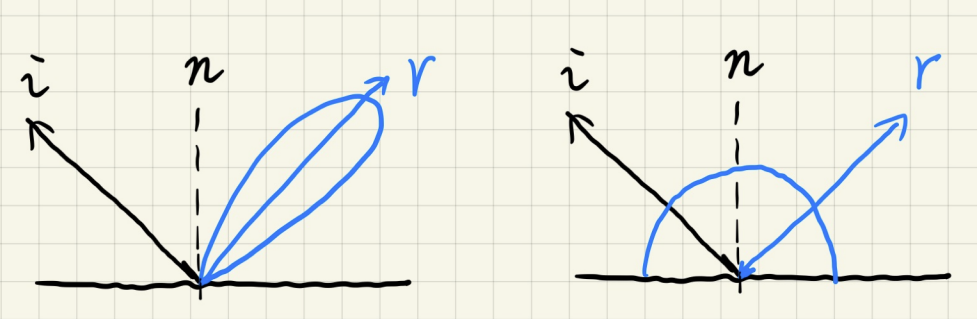 i n r
i n r